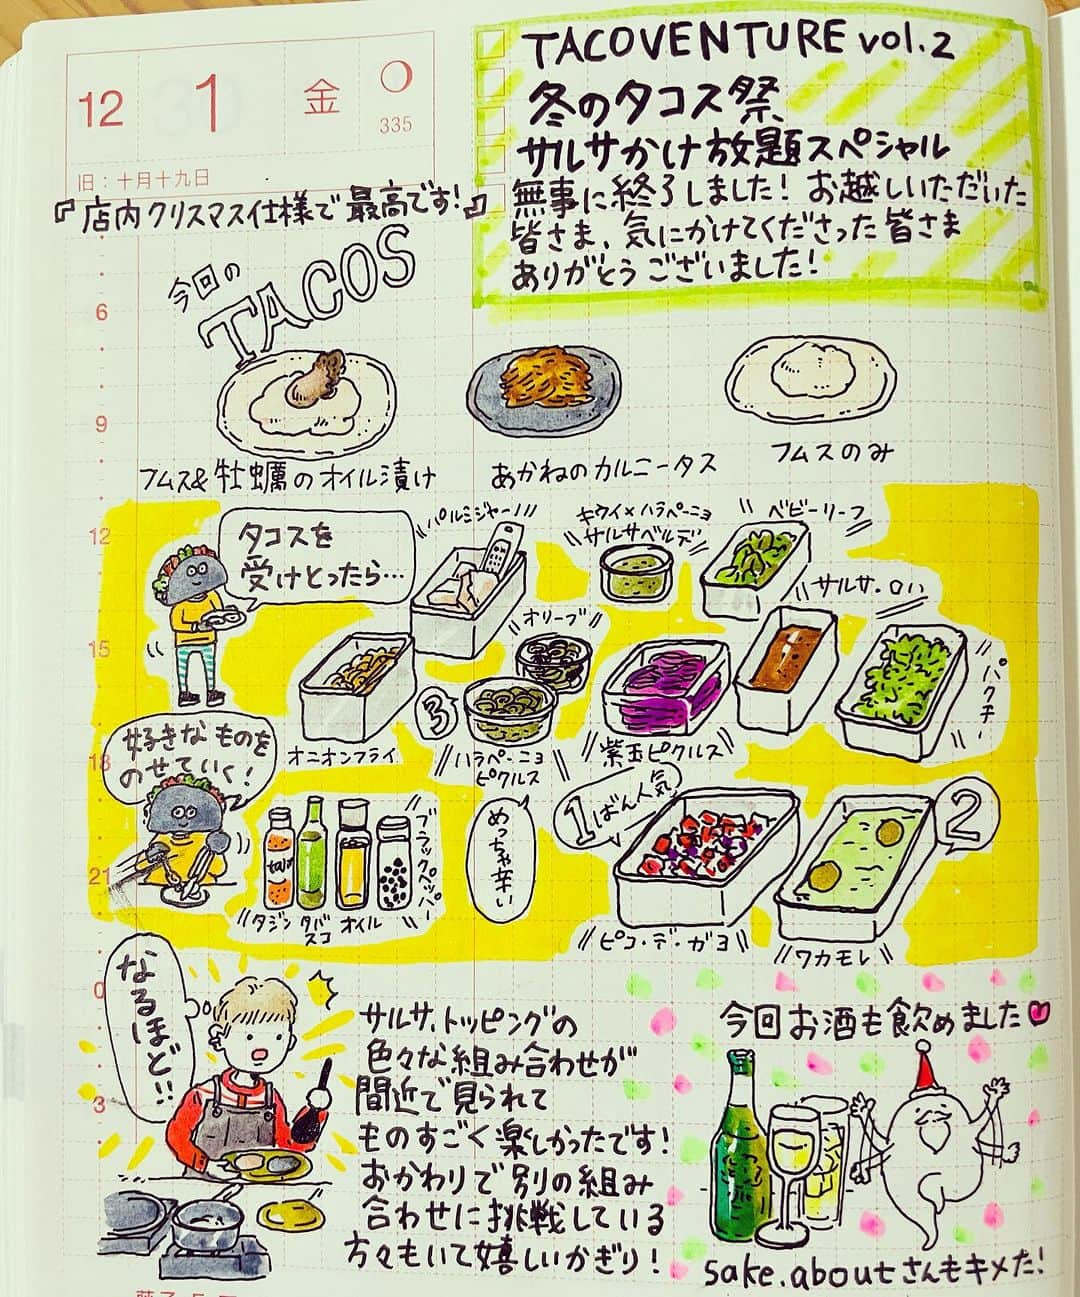 12
1
金
335
旧：十月十九日
『店内クリスマス仕様で最高です！』
TACOVENTURE vol.2
冬のタコス祭
サルサかけ放題スペシャル
無事に終了しました！お越しいただいた
皆さま、気にかけてくださった皆さま
ありがとうございました！
今回の
TACOS
フムス&牡蠣のオイル漬け
あかねのカルニータス
フムスのみ
6
9
12
15
18
21
0
3
タコスを
受けとったら…
パルミジャーノ
キウイ×ハラペーニョ
サルサベルデ
ベビーリーフ
サルサ・ロハ
オリーブ
パクチー
オニオンフライ
③
ハラペーニョ
ピクルス
紫玉ピクルス
好きなものを
のせていく！
ブラックペッパー
タジン
タバ
スコ
オイル
めっちゃ辛い
1ばん人気
2
ピコ・デ・ガヨ
ワカモレ
なるほど!!
サルサ、トッピングの
色々な組み合わせが
間近で見られて
ものすごく楽しかったです！
おかわりで別の組み
合わせに挑戦している
方々もいて嬉しいかぎり！
今回お酒も飲めました
sake.aboutさんもキメた！